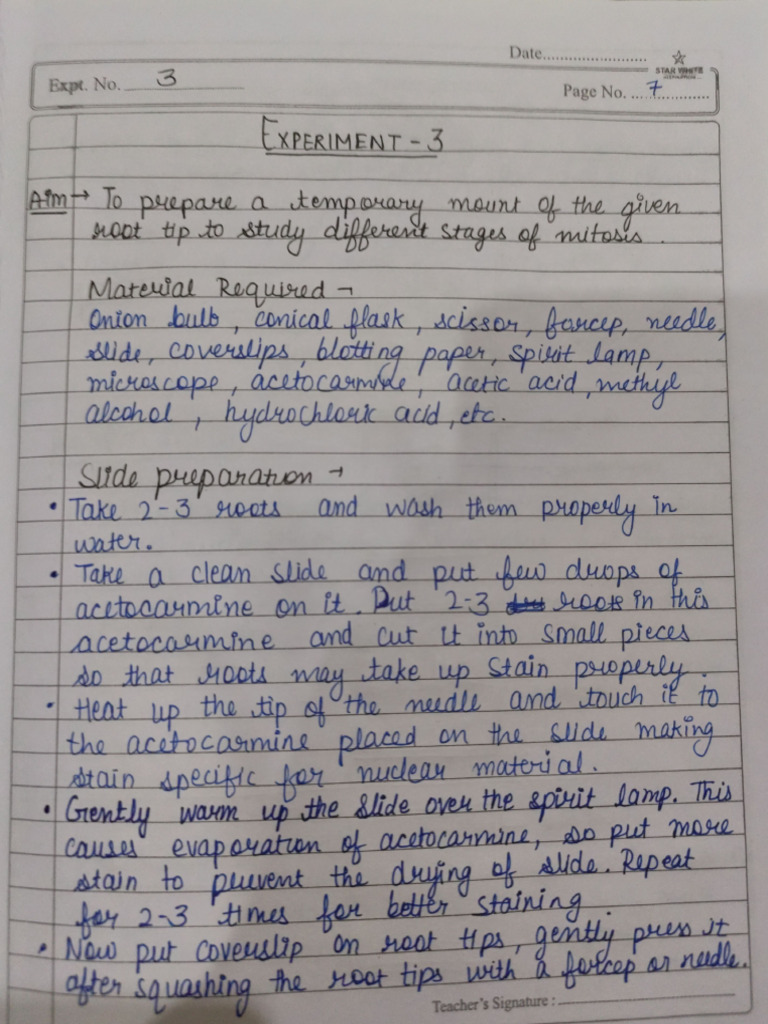 Date..........................
STAR WHITE
Expt. No. 3
Page No. 7
EXPERIMENT - 3
Aim → To prepare a temporary mount of the given
root tip to study different stages of mitosis.
Material Required →
Onion bulb, conical flask, scissor, forcep, needle,
slide, coverslips, blotting paper, spirit lamp,
microscope, acetocarmine, acetic acid, methyl
alcohol, hydrochloric acid, etc.
Slide preparation →
• Take 2-3 roots and wash them properly in
water.
• Take a clean slide and put few drops of
acetocarmine on it. Put 2-3 roots in this
acetocarmine and cut it into small pieces
so that roots may take up stain properly.
• Heat up the tip of the needle and touch it to
the acetocarmine placed on the slide making
stain specific for nuclear material.
• Gently warm up the slide over the spirit lamp. This
causes evaporation of acetocarmine, so put more
stain to prevent the drying of slide. Repeat
for 2-3 times for better staining
• Now put coverslip on root tips, gently press it
after squashing the root tips with a forcep or needle.
Teacher's Signature : ..........................